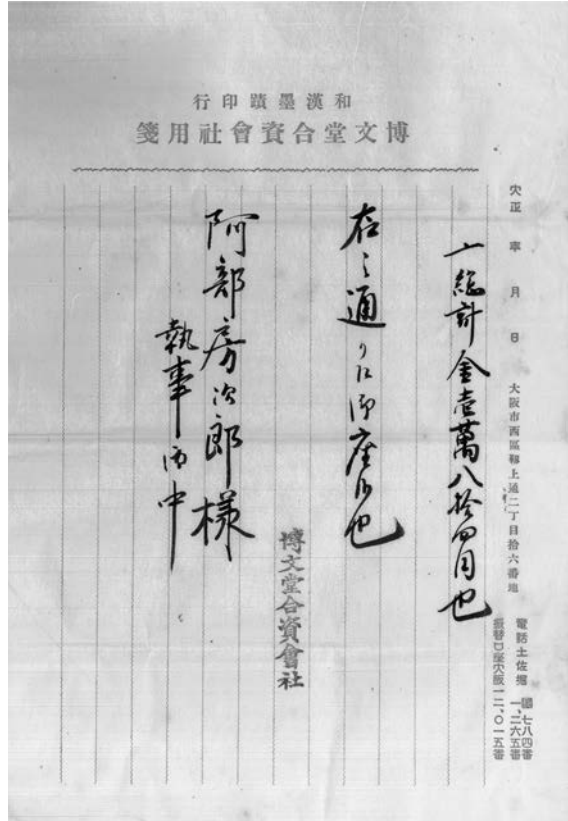 和漢墨蹟印行
博文堂合資會社用箋
大正 年 月 日 大阪市西區靱上通二丁目拾六番地
電話土佐堀
一、二六五番
振替口座大阪一二、〇一五番
一総計金壱萬八拾四円也
右之通りに御座候也
博文堂合資會社
阿部房次郎様
執事御中